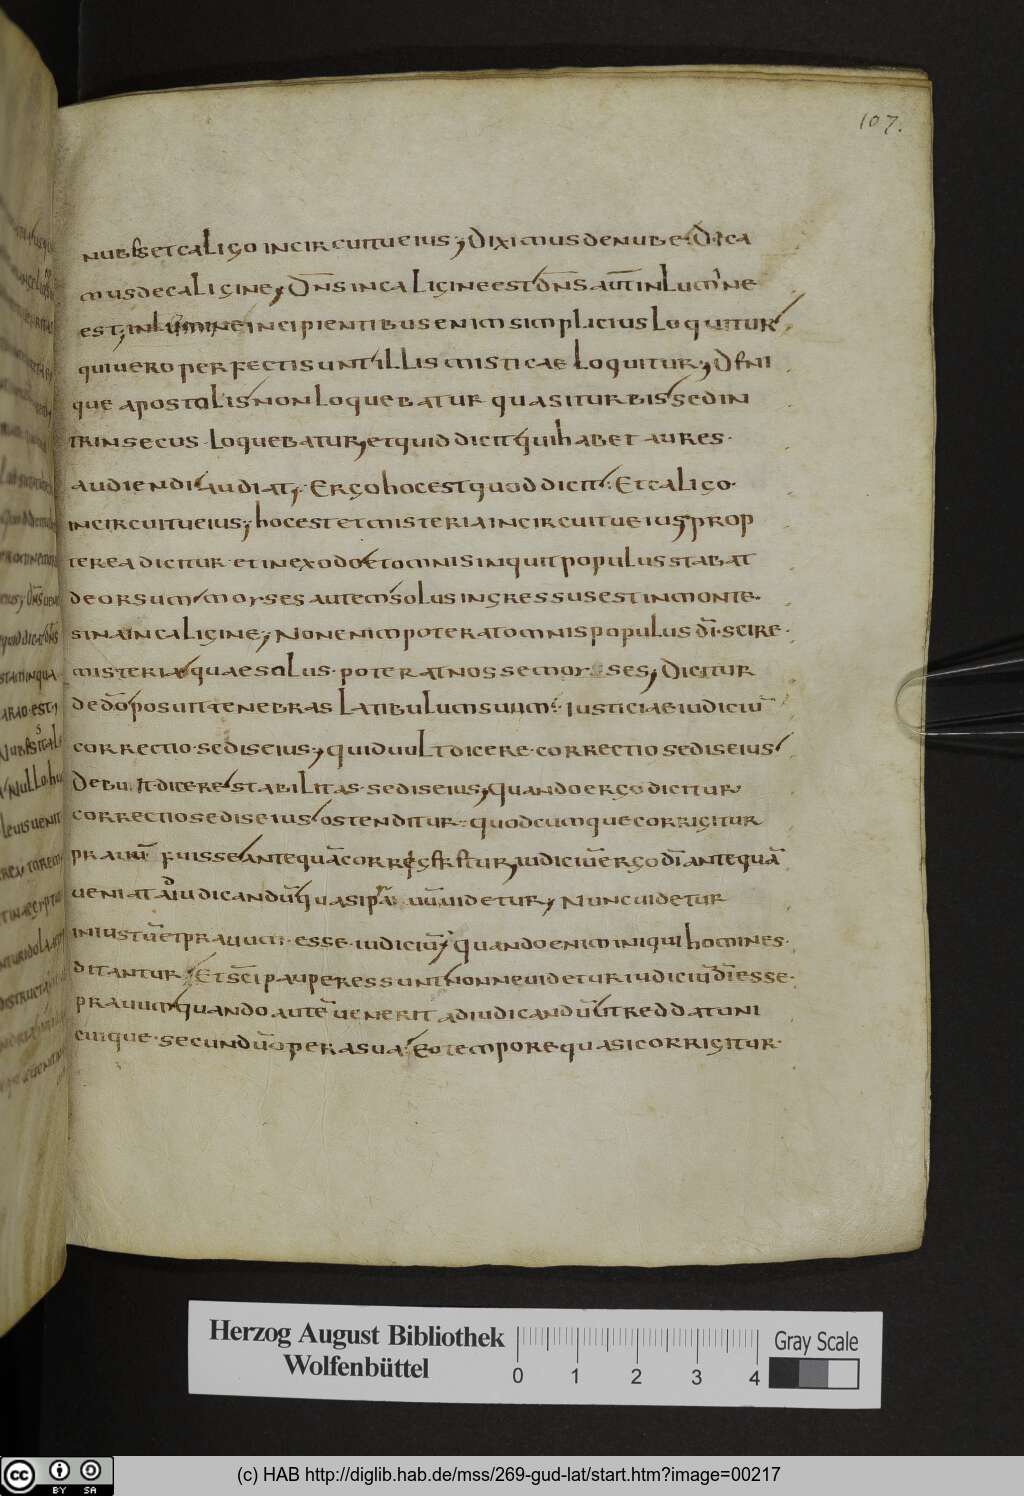 107.
nubis et caligo in circuitu eius; Diximus de nube. Dica
mus de caligine; Dn̄s in caligine est dn̄s aut̄ in lumine
est; in lumine incipientibus enim simplicius loquitur
qui uero perfecti sunt illis misticae loquitur; Deni
que apostolis non loquebatur quasi turbis sed in
trinsecus loquebatur, et quid dicit qui habet aures
audiendi audiat; Ergo hoc est quod dicit. Et caligo
in circuitu eius; hoc est et misteria in circuitu eius prop
terea dicitur et in exodo et omnis inquit populus stabat
deorsum morses autem solus ingressus est in monte
sina in caligine; Non enim poterat omnis populus dī scire
misteria quae solus poterat nosse morses; Dicitur
de dō posuit tenebras latibulum suum. Iusticiae iudiciū
correctio sedis eius; quid uult dicere correctio sedis eius
Debuit dicere stabilitas sedis eius, quando ergo dicitur
correctio sedis eius ostenditur quod cumque corrigitur
prauum fuisse antequā corrigeretur, iudiciū ergo dī antequā
ueniat ad iudicandū quasi prauum uidetur; Nunc uidetur
iniustū et prauum esse iudiciū quando enim iniqui homines
ditantur. Et sc̄i pauperes sunt nonne uidetur iudiciū dī esse
prauum quando autē uenerit ad iudicandū ut reddat uni
cuique secundū opera sua. Eo tempore quasi corrigitur
Herzog August Bibliothek
Wolfenbüttel
0 1 2 3 4
Gray Scale
cc BY SA
(c) HAB http://diglib.hab.de/mss/269-gud-lat/start.htm?image=00217